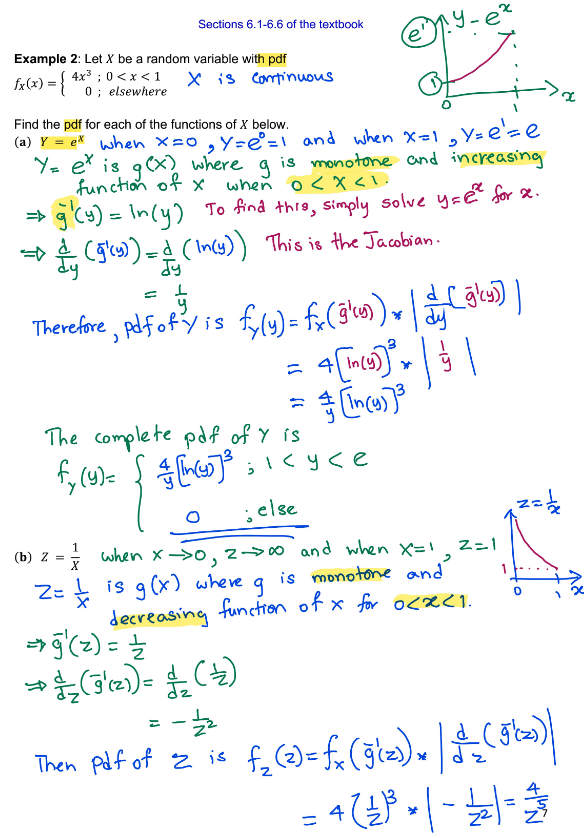 Sections 6.1-6.6 of the textbook
y = eˣ
e'
1
0
1
x
Example 2: Let X be a random variable with pdf
f_X(x) = { 4x³ ; 0 < x < 1
0 ; elsewhere
X is continuous
Find the pdf for each of the functions of X below.
(a) Y = eˣ when x=0, Y=e⁰=1 and when x=1, Y=e'=e
Y= eˣ is g(X) where g is monotone and increasing
function of X when 0<X<1.
⇒ g⁻¹(y) = ln(y) To find this, simply solve y=eˣ for x.
⇒ d/dy (g⁻¹(y)) = d/dy (ln(y)) This is the Jacobian.
= 1/y
Therefore, pdf of Y is f_Y(y) = f_X(g⁻¹(y)) * | d/dy [g⁻¹(y)] |
= 4[ln(y)]³ * | 1/y |
= 4/y [ln(y)]³
The complete pdf of Y is
f_Y(y)= { 4/y [ln(y)]³ ; 1 < y < e
0 ; else
(b) Z = 1/X when x→0, z→∞ and when x=1, z=1
z=1/x
1
0
1
x
Z= 1/X is g(X) where g is monotone and
decreasing function of x for 0<x<1.
⇒ g⁻¹(z) = 1/z
⇒ d/dz (g⁻¹(z)) = d/dz (1/z)
= - 1/z²
Then pdf of Z is f_Z(z) = f_X(g⁻¹(z)) * | d/dz (g⁻¹(z)) |
= 4(1/z)³ * | - 1/z² | = 4/z⁵